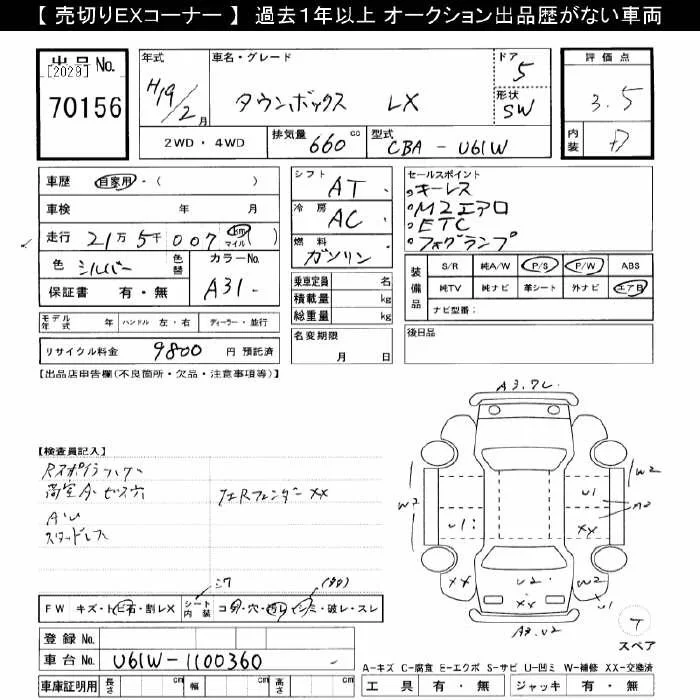 【 売切りEXコーナー 】 過去1年以上 オークション出品歴がない車両
出品No.
[2029]
70156
年式
H19/2月
車名・グレード
タウンボックス LX
ドア
5
形状
SW
評価点
3.5
内装
2WD・4WD
排気量 660 cc
型式 CBA-U61W
車歴 自家用・( )
車検 年 月
走行 21万5千007 km マイル ( )
色 シルバー 色替
カラーNo.
A31
保証書 有・無
シフト AT
冷房 AC
燃料 ガソリン
乗車定員 名
積載量 kg
総重量 kg
セールスポイント
キーレス
M2エアロ
ETC
フォグランプ
装備品
S/R 純A/W P/S P/W ABS
純TV 純ナビ 革シート 外ナビ エアB
ナビ型番:
モデル年式 年 ハンドル 左・右 ディーラー・並行
リサイクル料金 9800 円 預託済
名変期限
月 日
後日品
【出品店申告欄(不良箇所・欠品・注意事項等)】
【検査員記入】
A3.
W2
W2
U1
XX
U1
XX
U2
XX
W2
U1
A3.U2
スタッドレス
XX
FW キズ・トビ石・割レX
シート内装
コゲ・穴・切レ・シミ・破レ・スレ
登録No.
車台No. U61W-1100360
車庫証明用 長さ cm 幅 cm 高さ cm
スペア
A-キズ C-腐食 E-エクボ S-サビ U-凹ミ W-補修 XX-交換済
工具 有・無 ジャッキ 有・無